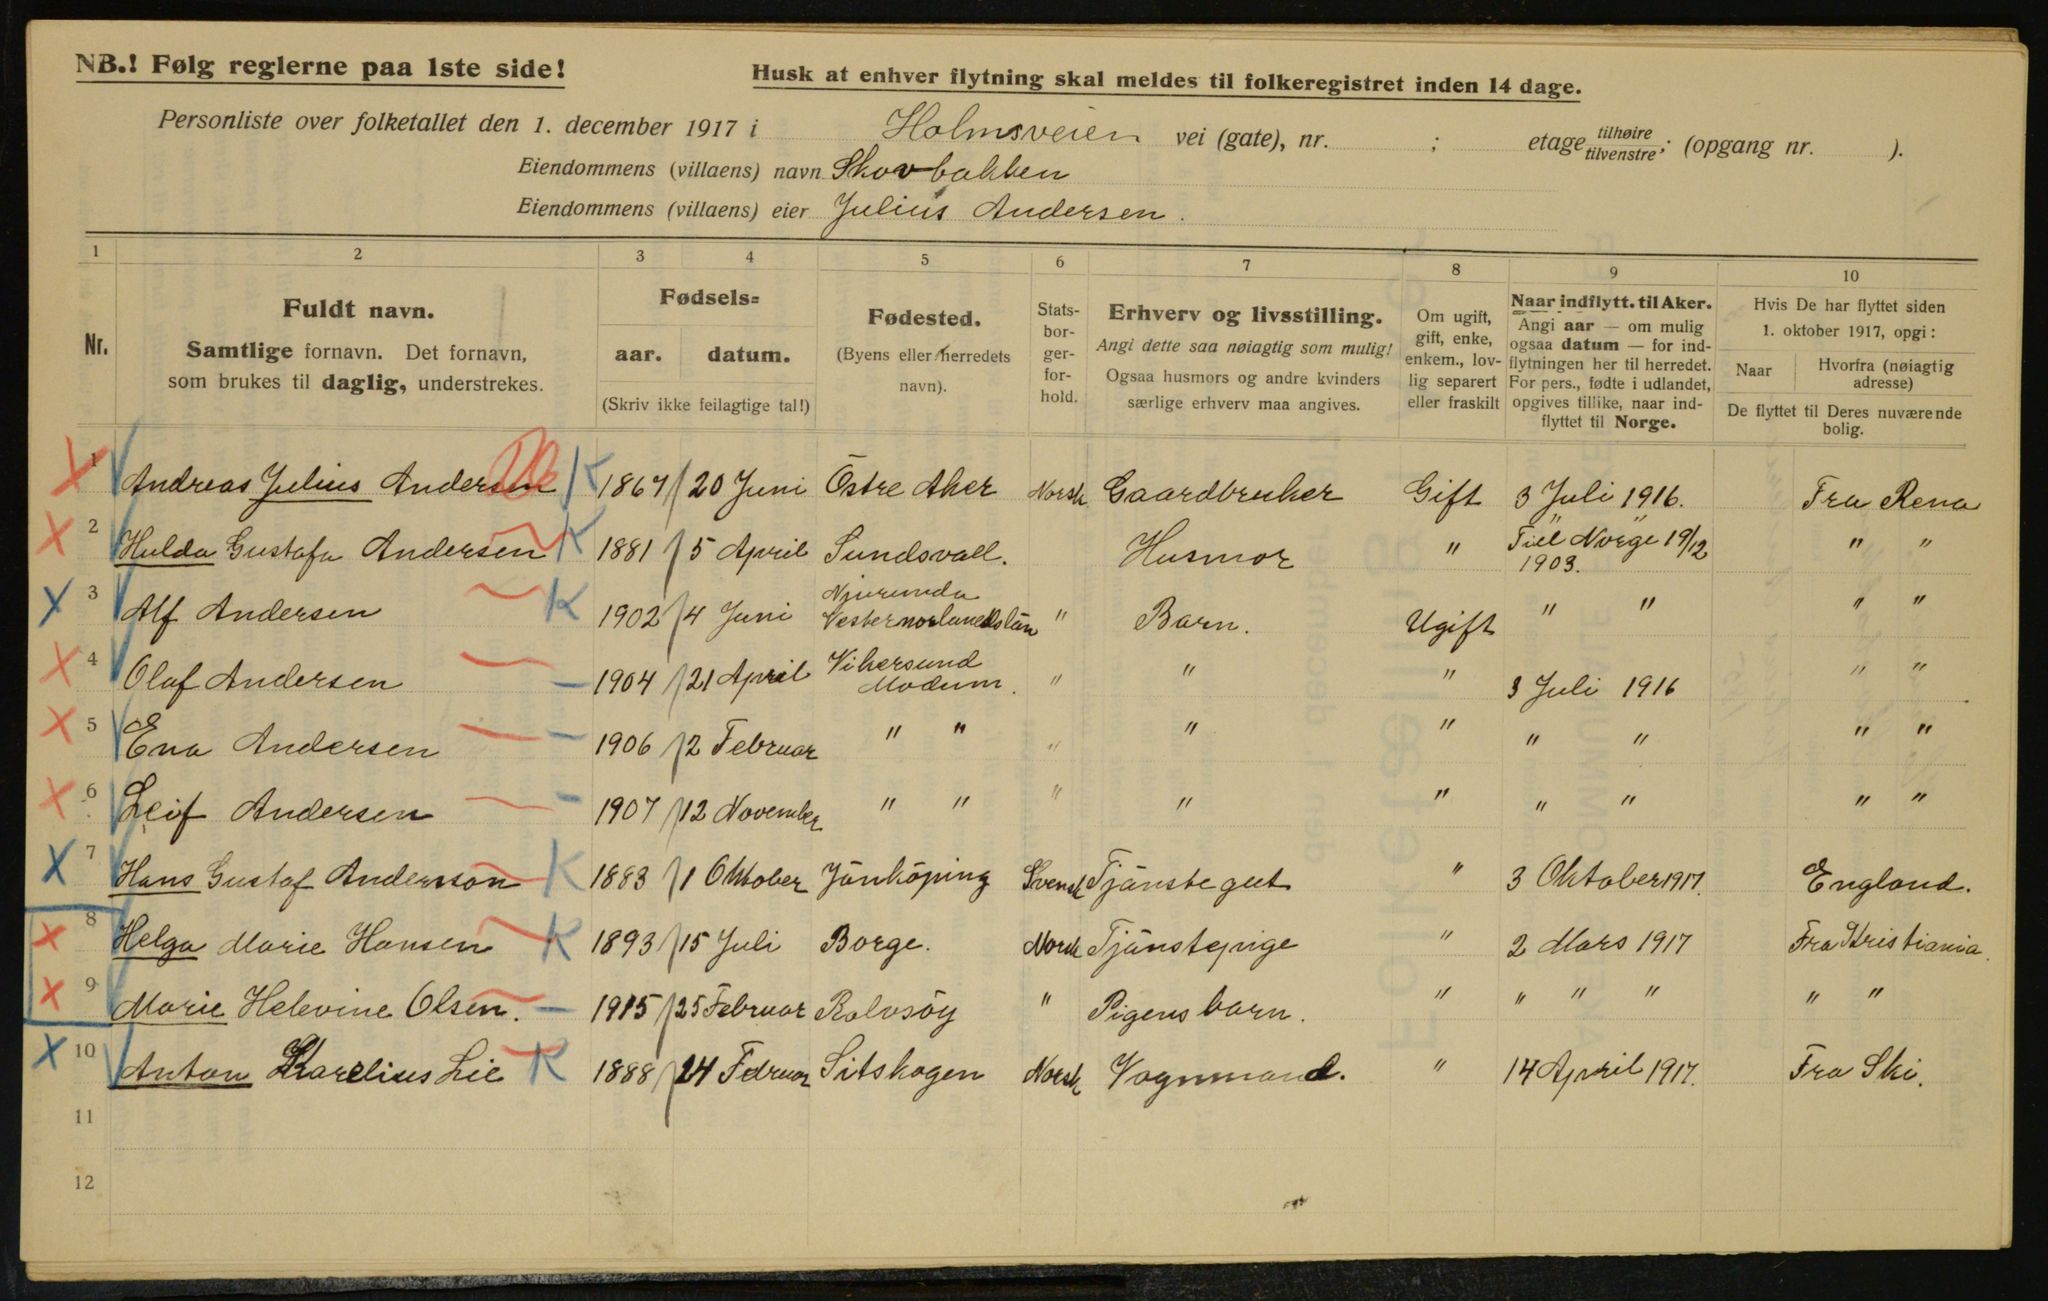 NB.! Følg reglerne paa 1ste side!
Husk at enhver flytning skal meldes til folkeregistret inden 14 dage.
Personliste over folketallet den 1. december 1917 i Holmsveien vei (gate), nr. ; etage tilhøire tilvenstre; (opgang nr. ).
Eiendommens (villaens) navn Skovbakken
Eiendommens (villaens) eier Julius Andersen.
1 2 3 4 5 6 7 8 9 10
Nr.
Fuldt navn.
Samtlige fornavn. Det fornavn,
som brukes til daglig, understrekes.
Fødsels=
aar. datum.
(Skriv ikke feilagtige tal!)
Fødested.
(Byens eller herredets
navn).
Stats-
bor-
ger-
for-
hold.
Erhverv og livsstilling.
Angi dette saa nøiagtig som mulig!
Ogsaa husmors og andre kvinders
særlige erhverv maa angives.
Om ugift,
gift, enke,
enkem., lov-
lig separert
eller fraskilt
Naar indflytt. til Aker.
Angi aar — om mulig
ogsaa datum — for ind-
flytningen her til herredet.
For pers., fødte i udlandet,
opgives tillike, naar ind-
flyttet til Norge.
Hvis De har flyttet siden
1. oktober 1917, opgi:
Naar Hvorfra (nøiagtig
adresse)
De flyttet til Deres nuværende
bolig.
1 Andreas Julius Andersen K 1867 20 Juni Östre Aker Norsk Gaardbruker Gift 3 Juli 1916. Fra Rena
2 Hulda Gustafa Andersen K 1881 5 April Sundsvall. Husmor " Till Norge 19/12 1903. " "
3 Alf Andersen K 1902 4 Juni Njurunda Vesternorlandslän " Barn. Ugift " " " "
4 Olaf Andersen — 1904 21 April Vikersund Modum. " " " 3 Juli 1916 " "
5 Eva Andersen — 1906 2 Februar " " " " " " " " "
6 Leif Andersen — 1907 12 November " " " " " " " " "
7 Hans Gustaf Andersson K 1883 1 Oktober Jönköping Svensk Tjänstegut " 3 Oktober 1917. England.
8 Helga Marie Hansen K 1893 15 Juli Borge. Norsk Tjänstepige " 2 Mars 1917 Fra Kristiania.
9 Marie Helevine Olsen. — 1915 25 Februar Rolvsöy " Pigens barn. " " " " " "
10 Anton Karelius Lie K 1888 24 Februar Sitskogen Norsk Vognmand. " 14 April 1917. Fra Ski.
11
12